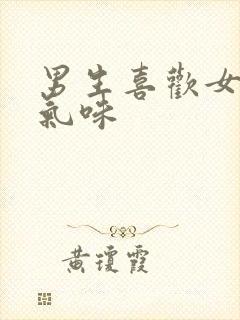 男生喜歡女
氣味
黃瓊霞